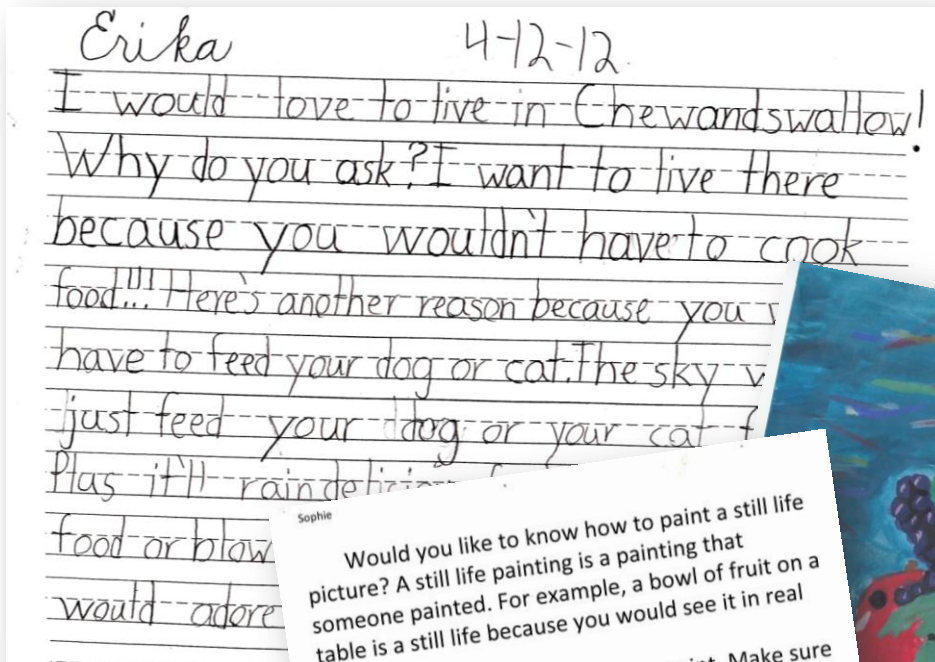 Erika 4-12-12
I would love to live in Chewandswallow!
Why do you ask? I want to live there
because you wouldn't have to cook
food!!! Here's another reason because you
have to feed your dog or cat. The sky
just feed your dog or your cat
Plus it'll rain
food or blow
would adore
Sophie
Would you like to know how to paint a still life
picture? A still life painting is a painting that
someone painted. For example, a bowl of fruit on a
table is a still life because you would see it in real
Make sure